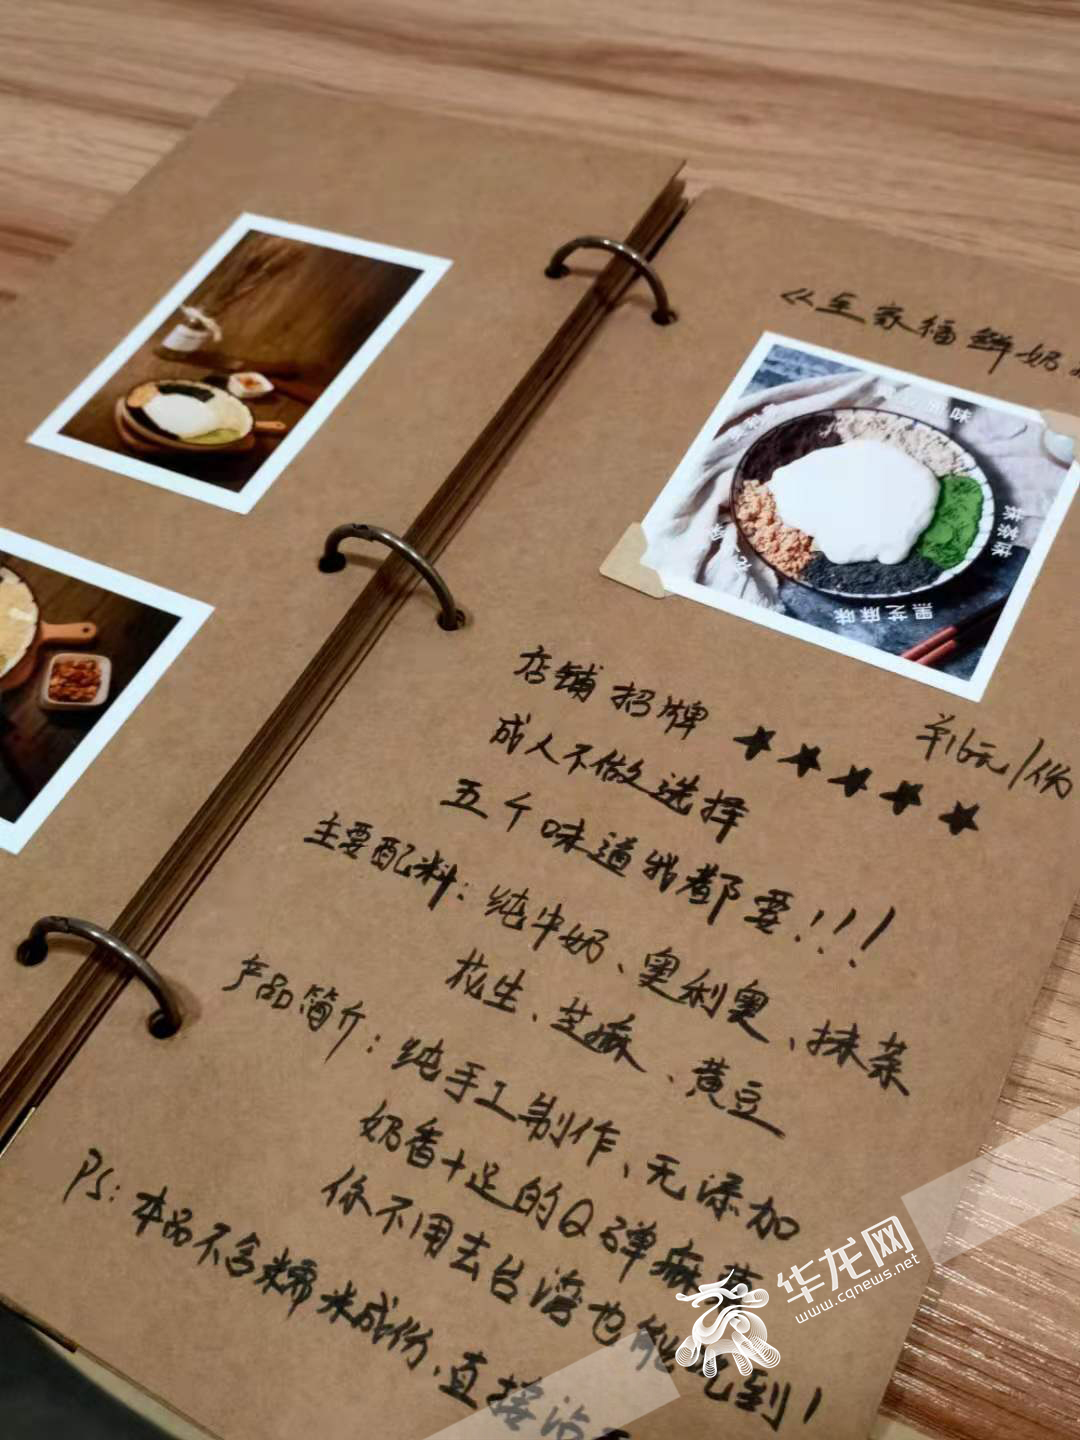 《全家福鲜奶
味
抹茶味
黑芝麻味
¥16元/份
店铺招牌 ★★★★★
成人不做选择
五个味道我都要!!!
主要配料:纯牛奶、奥利奥、抹茶
花生、芝麻、黄豆
产品简介:纯手工制作、无添加
奶香十足的Q弹麻薯
你不用去台湾也能吃到!
PS:本品不含糯米成份、直接沾
华龙网
www.cqnews.net